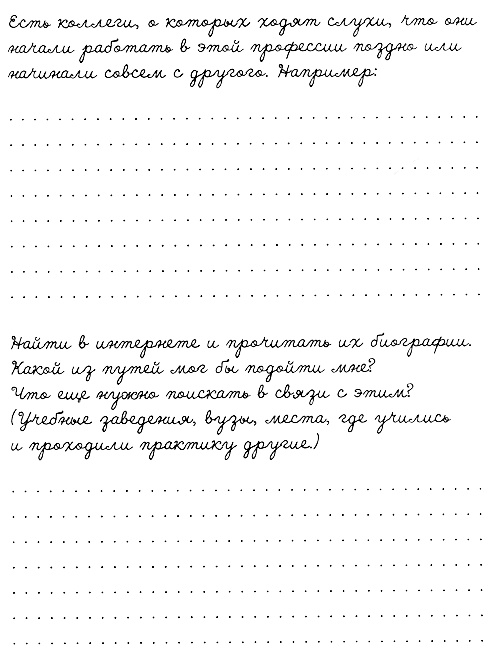 Есть коллеги, о которых ходят слухи, что они
начали работать в этой профессии поздно или
начинали совсем с другого. Например:
Найти в интернете и прочитать их биографии.
Какой из путей мог бы подойти мне?
Что еще нужно поискать в связи с этим?
(Учебные заведения, вузы, места, где учились
и проходили практику другие.)